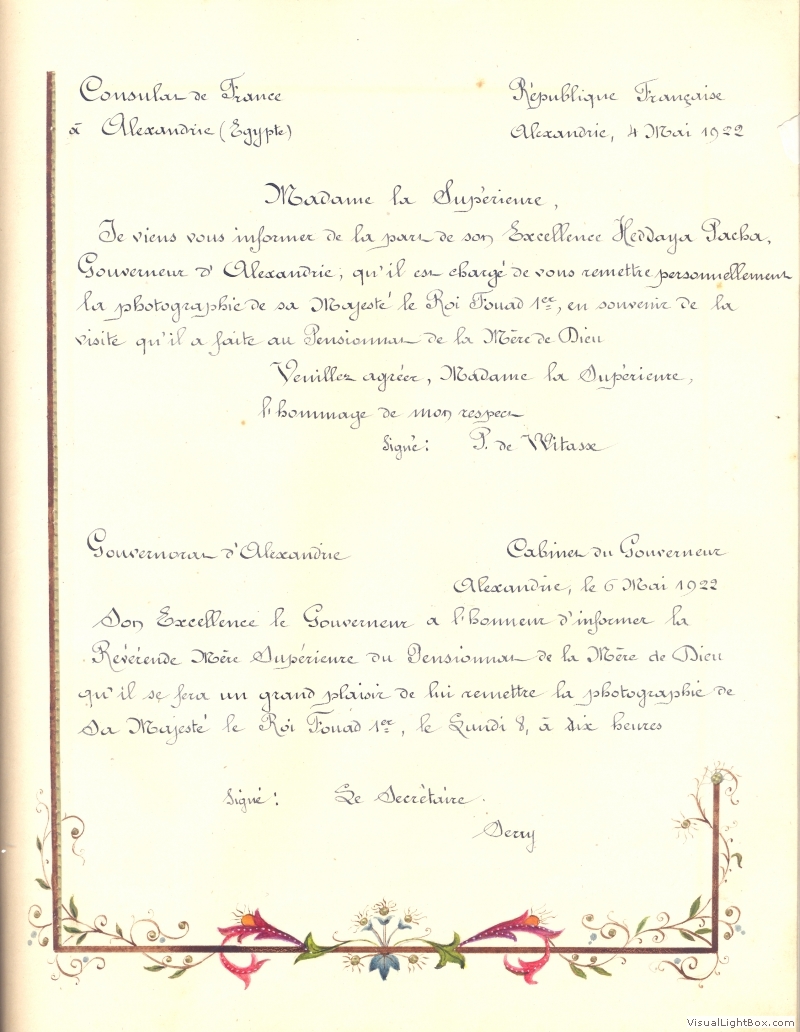 Consulat de France
République Française
à Alexandrie (Egypte)
Alexandrie, 4 Mai 1922
Madame la Supérieure,
Je viens vous informer de la part de son Excellence Heddaya Pacha,
Gouverneur d'Alexandrie, qu'il est chargé de vous remettre personnellement
la photographie de sa Majesté le Roi Fouad 1er, en souvenir de la
visite qu'il a faite au Pensionnat de la Mère de Dieu
Veuillez agréer, Madame la Supérieure,
l'hommage de mon respect
Signé: P. de Witasse
Gouvernorat d'Alexandrie
Cabinet du Gouverneur
Alexandrie, le 6 Mai 1922
Son Excellence le Gouverneur a l'honneur d'informer la
Révérende Mère Supérieure du Pensionnat de la Mère de Dieu
qu'il se fera un grand plaisir de lui remettre la photographie de
Sa Majesté le Roi Fouad 1er, le Lundi 8, à dix heures
Signé: Le Secrétaire.
Serry
VisualLightBox.com